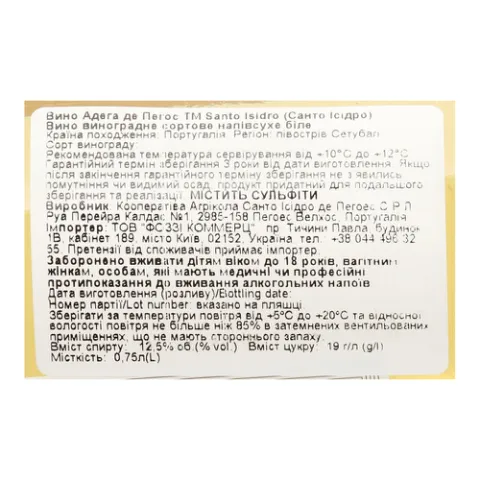 Вино Адега де Пегос ТМ Santo Isidro (Санто Ісідро)
Вино виноградне сортове напівсухе біле
Країна походження: Португалія Регіон: півострів Сетубал
Сорт винограду:
Рекомендована температура сервірування від +10°С до +12°С
Гарантійний термін зберігання 3 роки від дати виготовлення. Якщо
після закінчення гарантійного терміну зберігання не з явились
помутніння чи видимий осад, продукт придатний для подальшого
зберігання та реалізації. МІСТИТЬ СУЛЬФІТИ
Виробник: Кооператіва Агрікола Санто Ісідро де Пегоес С Р Л
Руа Перейра Калдас №1, 2985-158 Пегоес Велхос, Португалія
Імпортер: ТОВ "ФОЗЗІ КОММЕРЦ" пр. Тичини Павла, будинок
1В, кабінет 189, місто Київ, 02152, Україна тел. +38 044 496 32
55. Претензії від споживачів приймає імпортер.
Заборонено вживати дітям віком до 18 років, вагітним
жінкам, особам, які мають медичні чи професійні
протипоказання до вживання алкогольних напоїв
Дата виготовлення (розливу)/Bottling date:
Номер партії/Lot number: вказано на пляшці
Зберігати за температури повітря від +5°С до +20°С та відносної
вологості повітря не більше ніж 85% в затемнених вентильованих
приміщеннях, що не мають стороннього запаху.
Вміст спирту: 12,5% об.(% vol.) Вміст цукру: 19 г/л (g/l)
Місткість: 0,75л(L)